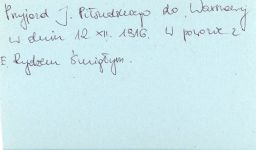 Przyjazd J. Piłsudskiego do Warszawy
w dniu 12 XII. 1916. W powozie z
E. Rydzem Śmigłym.